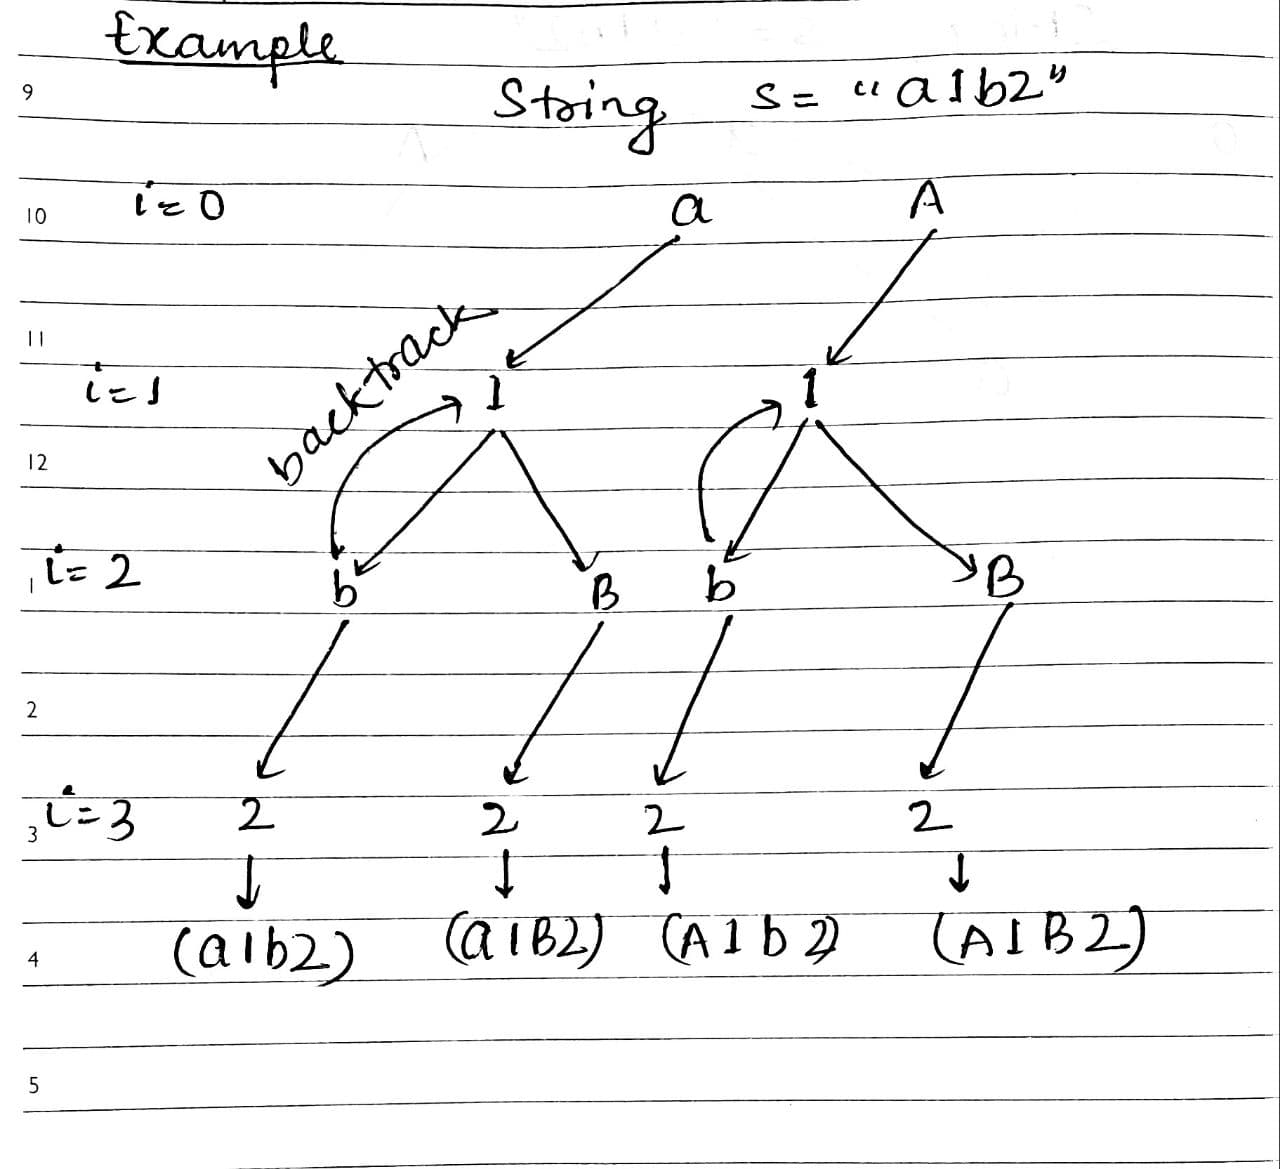 Example
9
String s = "a1b2"
10 i=0 a A
backtrack
11
i=1 1 1
12
1 i=2 b B b B
2
3 i=3 2 2 2 2
4 (a1b2) (a1B2) (A1b2) (A1B2)
5